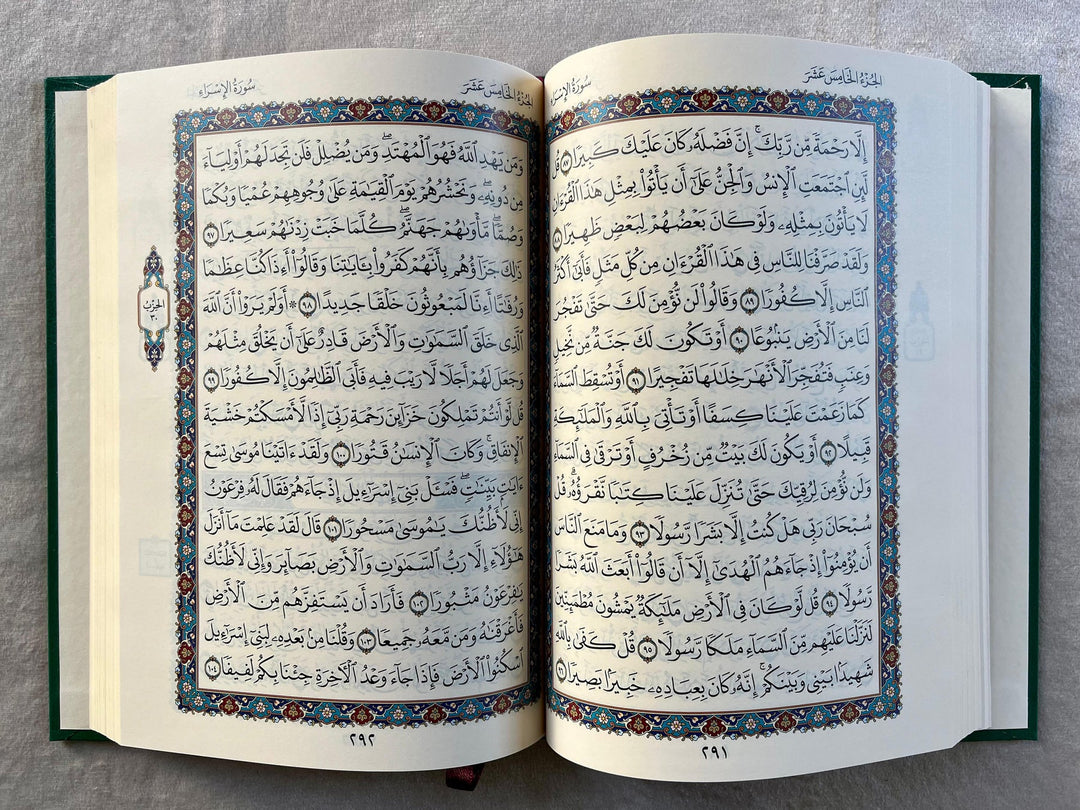 الجزء الخامس عشر
سورة الإسراء
إِلَّا رَحْمَةً مِّن رَّبِّكَ ۚ إِنَّ فَضْلَهُۥ كَانَ عَلَيْكَ كَبِيرًا ٨٧ قُل
لَّئِنِ ٱجْتَمَعَتِ ٱلْإِنسُ وَٱلْجِنُّ عَلَىٰٓ أَن يَأْتُوا۟ بِمِثْلِ هَٰذَا ٱلْقُرْءَانِ
لَا يَأْتُونَ بِمِثْلِهِۦ وَلَوْ كَانَ بَعْضُهُمْ لِبَعْضٍ ظَهِيرًا ٨٨
وَلَقَدْ صَرَّفْنَا لِلنَّاسِ فِى هَٰذَا ٱلْقُرْءَانِ مِن كُلِّ مَثَلٍ فَأَبَىٰٓ أَكْثَرُ
ٱلنَّاسِ إِلَّا كُفُورًا ٨٩ وَقَالُوا۟ لَن نُّؤْمِنَ لَكَ حَتَّىٰ تَفْجُرَ
لَنَا مِنَ ٱلْأَرْضِ يَنۢبُوعًا ٩٠ أَوْ تَكُونَ لَكَ جَنَّةٌ مِّن نَّخِيلٍ
وَعِنَبٍ فَتُفَجِّرَ ٱلْأَنْهَٰرَ خِلَٰلَهَا تَفْجِيرًا ٩١ أَوْ تُسْقِطَ ٱلسَّمَآءَ
كَمَا زَعَمْتَ عَلَيْنَا كِسَفًا أَوْ تَأْتِىَ بِٱللَّهِ وَٱلْمَلَٰٓئِكَةِ
قَبِيلًا ٩٢ أَوْ يَكُونَ لَكَ بَيْتٌ مِّن زُخْرُفٍ أَوْ تَرْقَىٰ فِى ٱلسَّمَآءِ
وَلَن نُّؤْمِنَ لِرُقِيِّكَ حَتَّىٰ تُنَزِّلَ عَلَيْنَا كِتَٰبًا نَّقْرَؤُهُۥ ۗ قُلْ
سُبْحَانَ رَبِّى هَلْ كُنتُ إِلَّا بَشَرًا رَّسُولًا ٩٣ وَمَا مَنَعَ ٱلنَّاسَ
أَن يُؤْمِنُوٓا۟ إِذْ جَآءَهُمُ ٱلْهُدَىٰٓ إِلَّآ أَن قَالُوٓا۟ أَبَعَثَ ٱللَّهُ بَشَرًا
رَّسُولًا ٩٤ قُل لَّوْ كَانَ فِى ٱلْأَرْضِ مَلَٰٓئِكَةٌ يَمْشُونَ مُطْمَئِنِّينَ
لَنَزَّلْنَا عَلَيْهِم مِّنَ ٱلسَّمَآءِ مَلَكًا رَّسُولًا ٩٥ قُلْ كَفَىٰ بِٱللَّهِ
شَهِيدًۢا بَيْنِى وَبَيْنَكُمْ ۚ إِنَّهُۥ كَانَ بِعِبَادِهِۦ خَبِيرًۢا بَصِيرًا ٩٦
٢٩١
الجزء الخامس عشر
سورة الإسراء
وَمَن يَهْدِ ٱللَّهُ فَهُوَ ٱلْمُهْتَدِ ۖ وَمَن يُضْلِلْ فَلَن تَجِدَ لَهُمْ أَوْلِيَآءَ
مِن دُونِهِۦ ۖ وَنَحْشُرُهُمْ يَوْمَ ٱلْقِيَٰمَةِ عَلَىٰ وُجُوهِهِمْ عُمْيًا وَبُكْمًا
وَصُمًّا ۖ مَّأْوَىٰهُمْ جَهَنَّمُ ۖ كُلَّمَا خَبَتْ زِدْنَٰهُمْ سَعِيرًا ٩٧
ذَٰلِكَ جَزَآؤُهُم بِأَنَّهُمْ كَفَرُوا۟ بِـَٔايَٰتِنَا وَقَالُوٓا۟ أَءِذَا كُنَّا عِظَٰمًا
وَرُفَٰتًا أَءِنَّا لَمَبْعُوثُونَ خَلْقًا جَدِيدًا ٩٨ ۞ أَوَلَمْ يَرَوْا۟ أَنَّ ٱللَّهَ
ٱلَّذِى خَلَقَ ٱلسَّمَٰوَٰتِ وَٱلْأَرْضَ قَادِرٌ عَلَىٰٓ أَن يَخْلُقَ مِثْلَهُمْ
وَجَعَلَ لَهُمْ أَجَلًا لَّا رَيْبَ فِيهِ فَأَبَى ٱلظَّٰلِمُونَ إِلَّا كُفُورًا ٩٩
قُل لَّوْ أَنتُمْ تَمْلِكُونَ خَزَآئِنَ رَحْمَةِ رَبِّىٓ إِذًا لَّأَمْسَكْتُمْ خَشْيَةَ
ٱلْإِنفَاقِ ۚ وَكَانَ ٱلْإِنسَٰنُ قَتُورًا ١٠٠ وَلَقَدْ ءَاتَيْنَا مُوسَىٰ تِسْعَ
ءَايَٰتٍۭ بَيِّنَٰتٍ ۖ فَسْـَٔلْ بَنِىٓ إِسْرَٰٓءِيلَ إِذْ جَآءَهُمْ فَقَالَ لَهُۥ فِرْعَوْنُ
إِنِّى لَأَظُنُّكَ يَٰمُوسَىٰ مَسْحُورًا ١٠١ قَالَ لَقَدْ عَلِمْتَ مَآ أَنزَلَ
هَٰٓؤُلَآءِ إِلَّا رَبُّ ٱلسَّمَٰوَٰتِ وَٱلْأَرْضِ بَصَآئِرَ وَإِنِّى لَأَظُنُّكَ
يَٰفِرْعَوْنُ مَثْبُورًا ١٠٢ فَأَرَادَ أَن يَسْتَفِزَّهُم مِّنَ ٱلْأَرْضِ
فَأَغْرَقْنَٰهُ وَمَن مَّعَهُۥ جَمِيعًا ١٠٣ وَقُلْنَا مِنۢ بَعْدِهِۦ لِبَنِىٓ إِسْرَٰٓءِيلَ
ٱسْكُنُوا۟ ٱلْأَرْضَ فَإِذَا جَآءَ وَعْدُ ٱلْأَخِرَةِ جِئْنَا بِكُمْ لَفِيفًا ١٠٤
الحزب
٣٠
٢٩٢